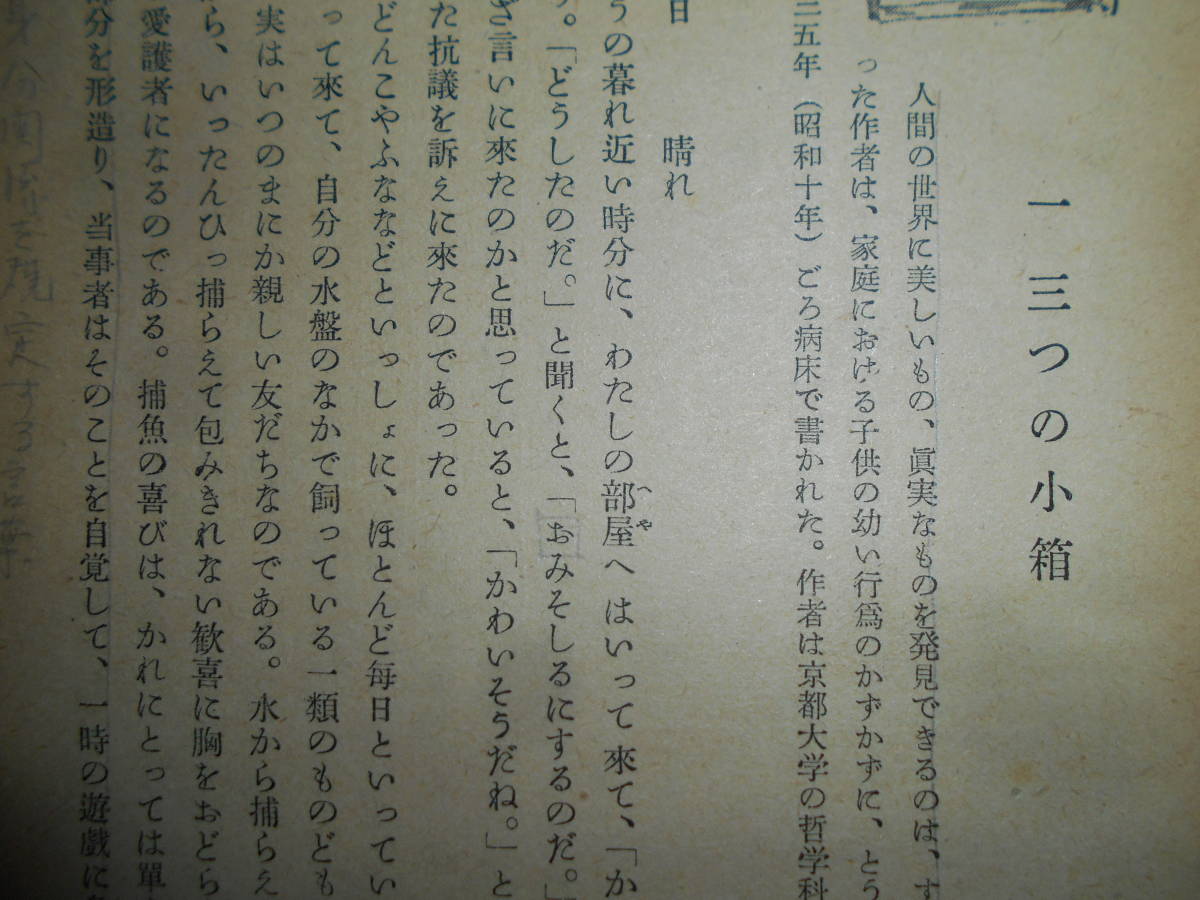 一 三つの小箱
人間の世界に美しいもの、眞実なものを発見できるのは、す
った作者は、家庭における子供の幼い行爲のかずかずに、とう
三五年（昭和十年）ごろ病床で書かれた。作者は京都大学の哲学科
日　晴れ
うの暮れ近い時分に、わたしの部屋へはいって來て、「か
へや
。「どうしたのだ。」と聞くと、「おみそしるにするのだ。」
ざ言いに來たのかと思っていると、「かわいそうだね。」と
た抗議を訴えに來たのであった。
どんこやふななどといっしょに、ほとんど毎日といってい
って來て、自分の水盤のなかで飼っている一類のものども
実はいつのまにか親しい友だちなのである。水から捕らえ
ら、いったんひっ捕らえて包みきれない歓喜に胸をおどら
愛護者になるのである。捕魚の喜びは、かれにとっては單
部分を形造り、当事者はそのことを自覚して、一時の遊戲に